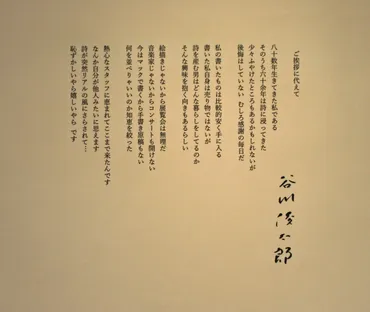 ご挨拶に代えて
八十数年生きてきた私である
そのうち六十余年は詩に浸ってきた
少々ふやけたところもあるかもしれないが
後悔はしていない むしろ感謝の毎日だ
私の書いたものは比較的安く手に入る
書いた私自身は売り物ではないが
詩を産む男はどんな暮らしをしてるのか
そんな興味を抱く向きもあるらしい
絵描きじゃないから展覧会は無理だ
音楽家じゃないからコンサートも開けない
今はマックで書くから手書き原稿もない
何を並べりゃいいのか知恵を絞った
熱心なスタッフに恵まれてここまで来たんです
なんか自分が他人みたいに思えます
詩が突然リアルの風にさらされて…
恥ずかしいやら嬉しいやら です
谷川俊太郎